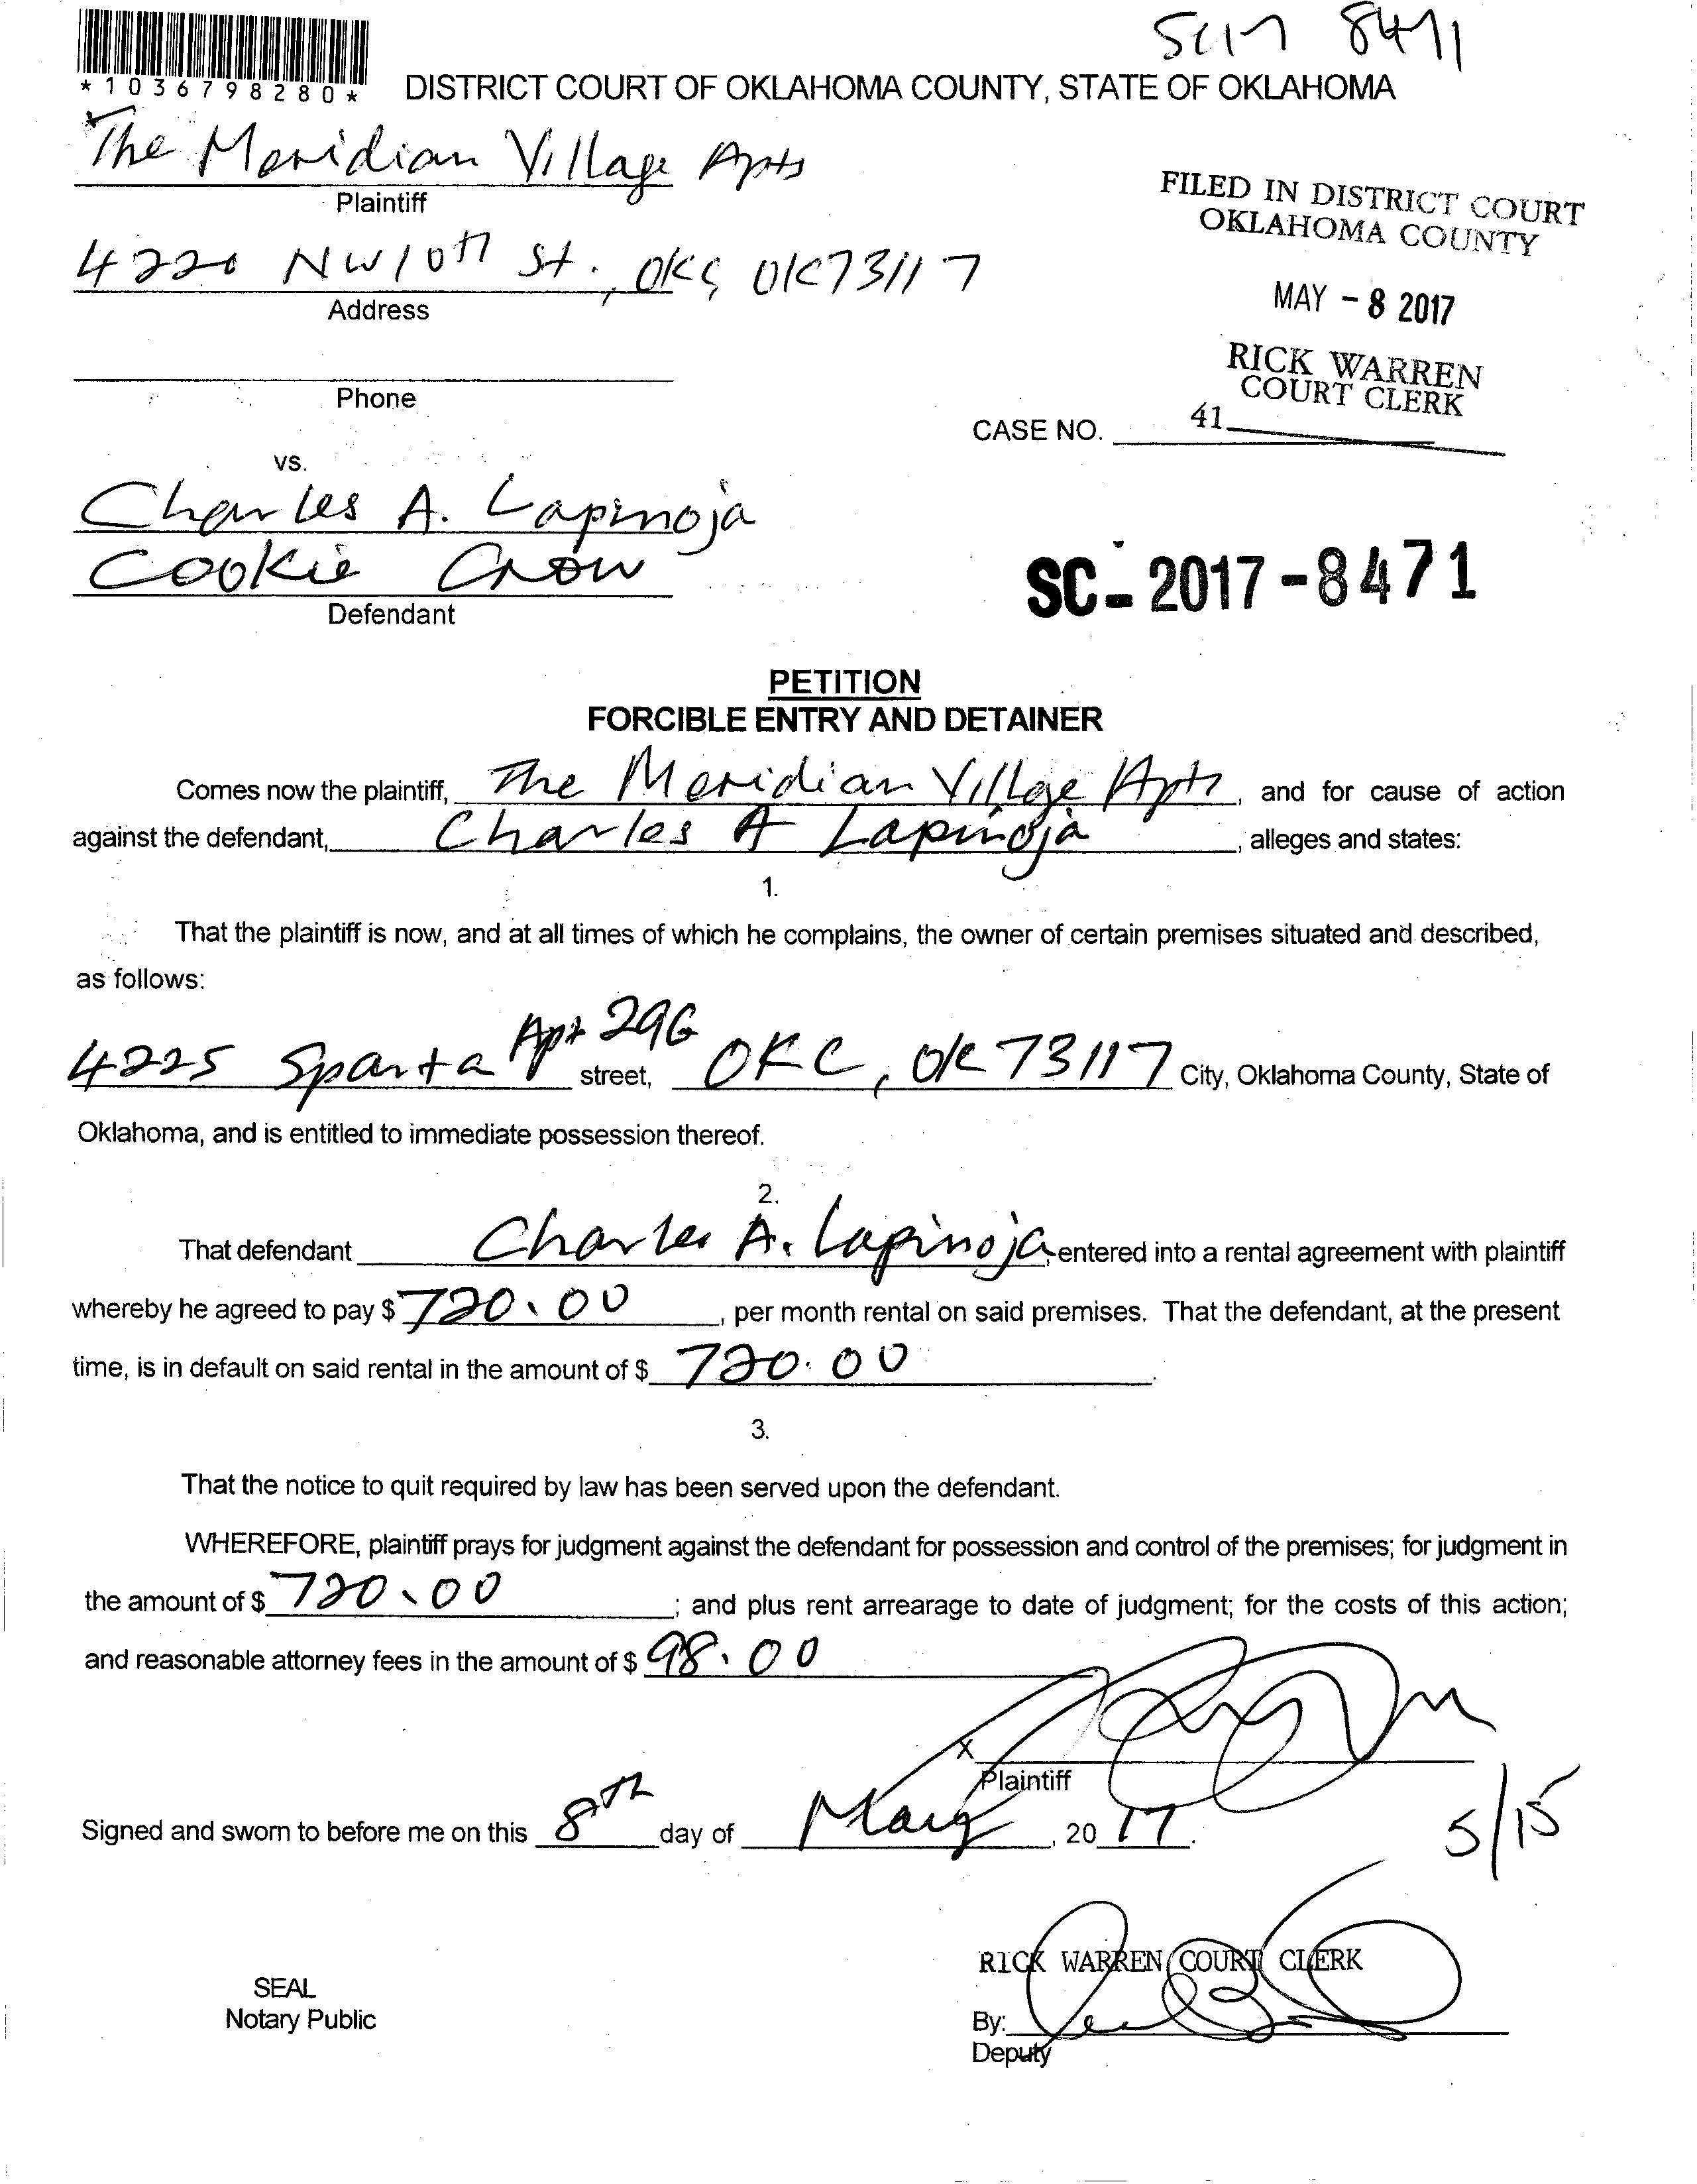 SC17 8471
*1036798280*
DISTRICT COURT OF OKLAHOMA COUNTY, STATE OF OKLAHOMA
The Meridian Village Apts
Plaintiff
4220 NW 10th St., OKC, OK 73117
Address
Phone
FILED IN DISTRICT COURT
OKLAHOMA COUNTY
MAY - 8 2017
RICK WARREN
COURT CLERK
CASE NO. 41
vs.
Charles A. Lapinoja
Cookie Crow
Defendant
SC- 2017 - 8471
PETITION
FORCIBLE ENTRY AND DETAINER
Comes now the plaintiff, The Meridian Village Apts, and for cause of action
against the defendant, Charles A Lapinoja, alleges and states:
1.
That the plaintiff is now, and at all times of which he complains, the owner of certain premises situated and described,
as follows:
4225 Sparta Apt 29G street, OKC, OK 73117 City, Oklahoma County, State of
Oklahoma, and is entitled to immediate possession thereof.
2.
That defendant Charles A. Lapinoja, entered into a rental agreement with plaintiff
whereby he agreed to pay $ 720.00, per month rental on said premises. That the defendant, at the present
time, is in default on said rental in the amount of $ 720.00.
3.
That the notice to quit required by law has been served upon the defendant.
WHEREFORE, plaintiff prays for judgment against the defendant for possession and control of the premises; for judgment in
the amount of $ 720.00; and plus rent arrearage to date of judgment; for the costs of this action;
and reasonable attorney fees in the amount of $ 98.00
X
Plaintiff
Signed and sworn to before me on this 8th day of May, 2017.
5/15
RICK WARREN COURT CLERK
SEAL
Notary Public
By:
Deputy